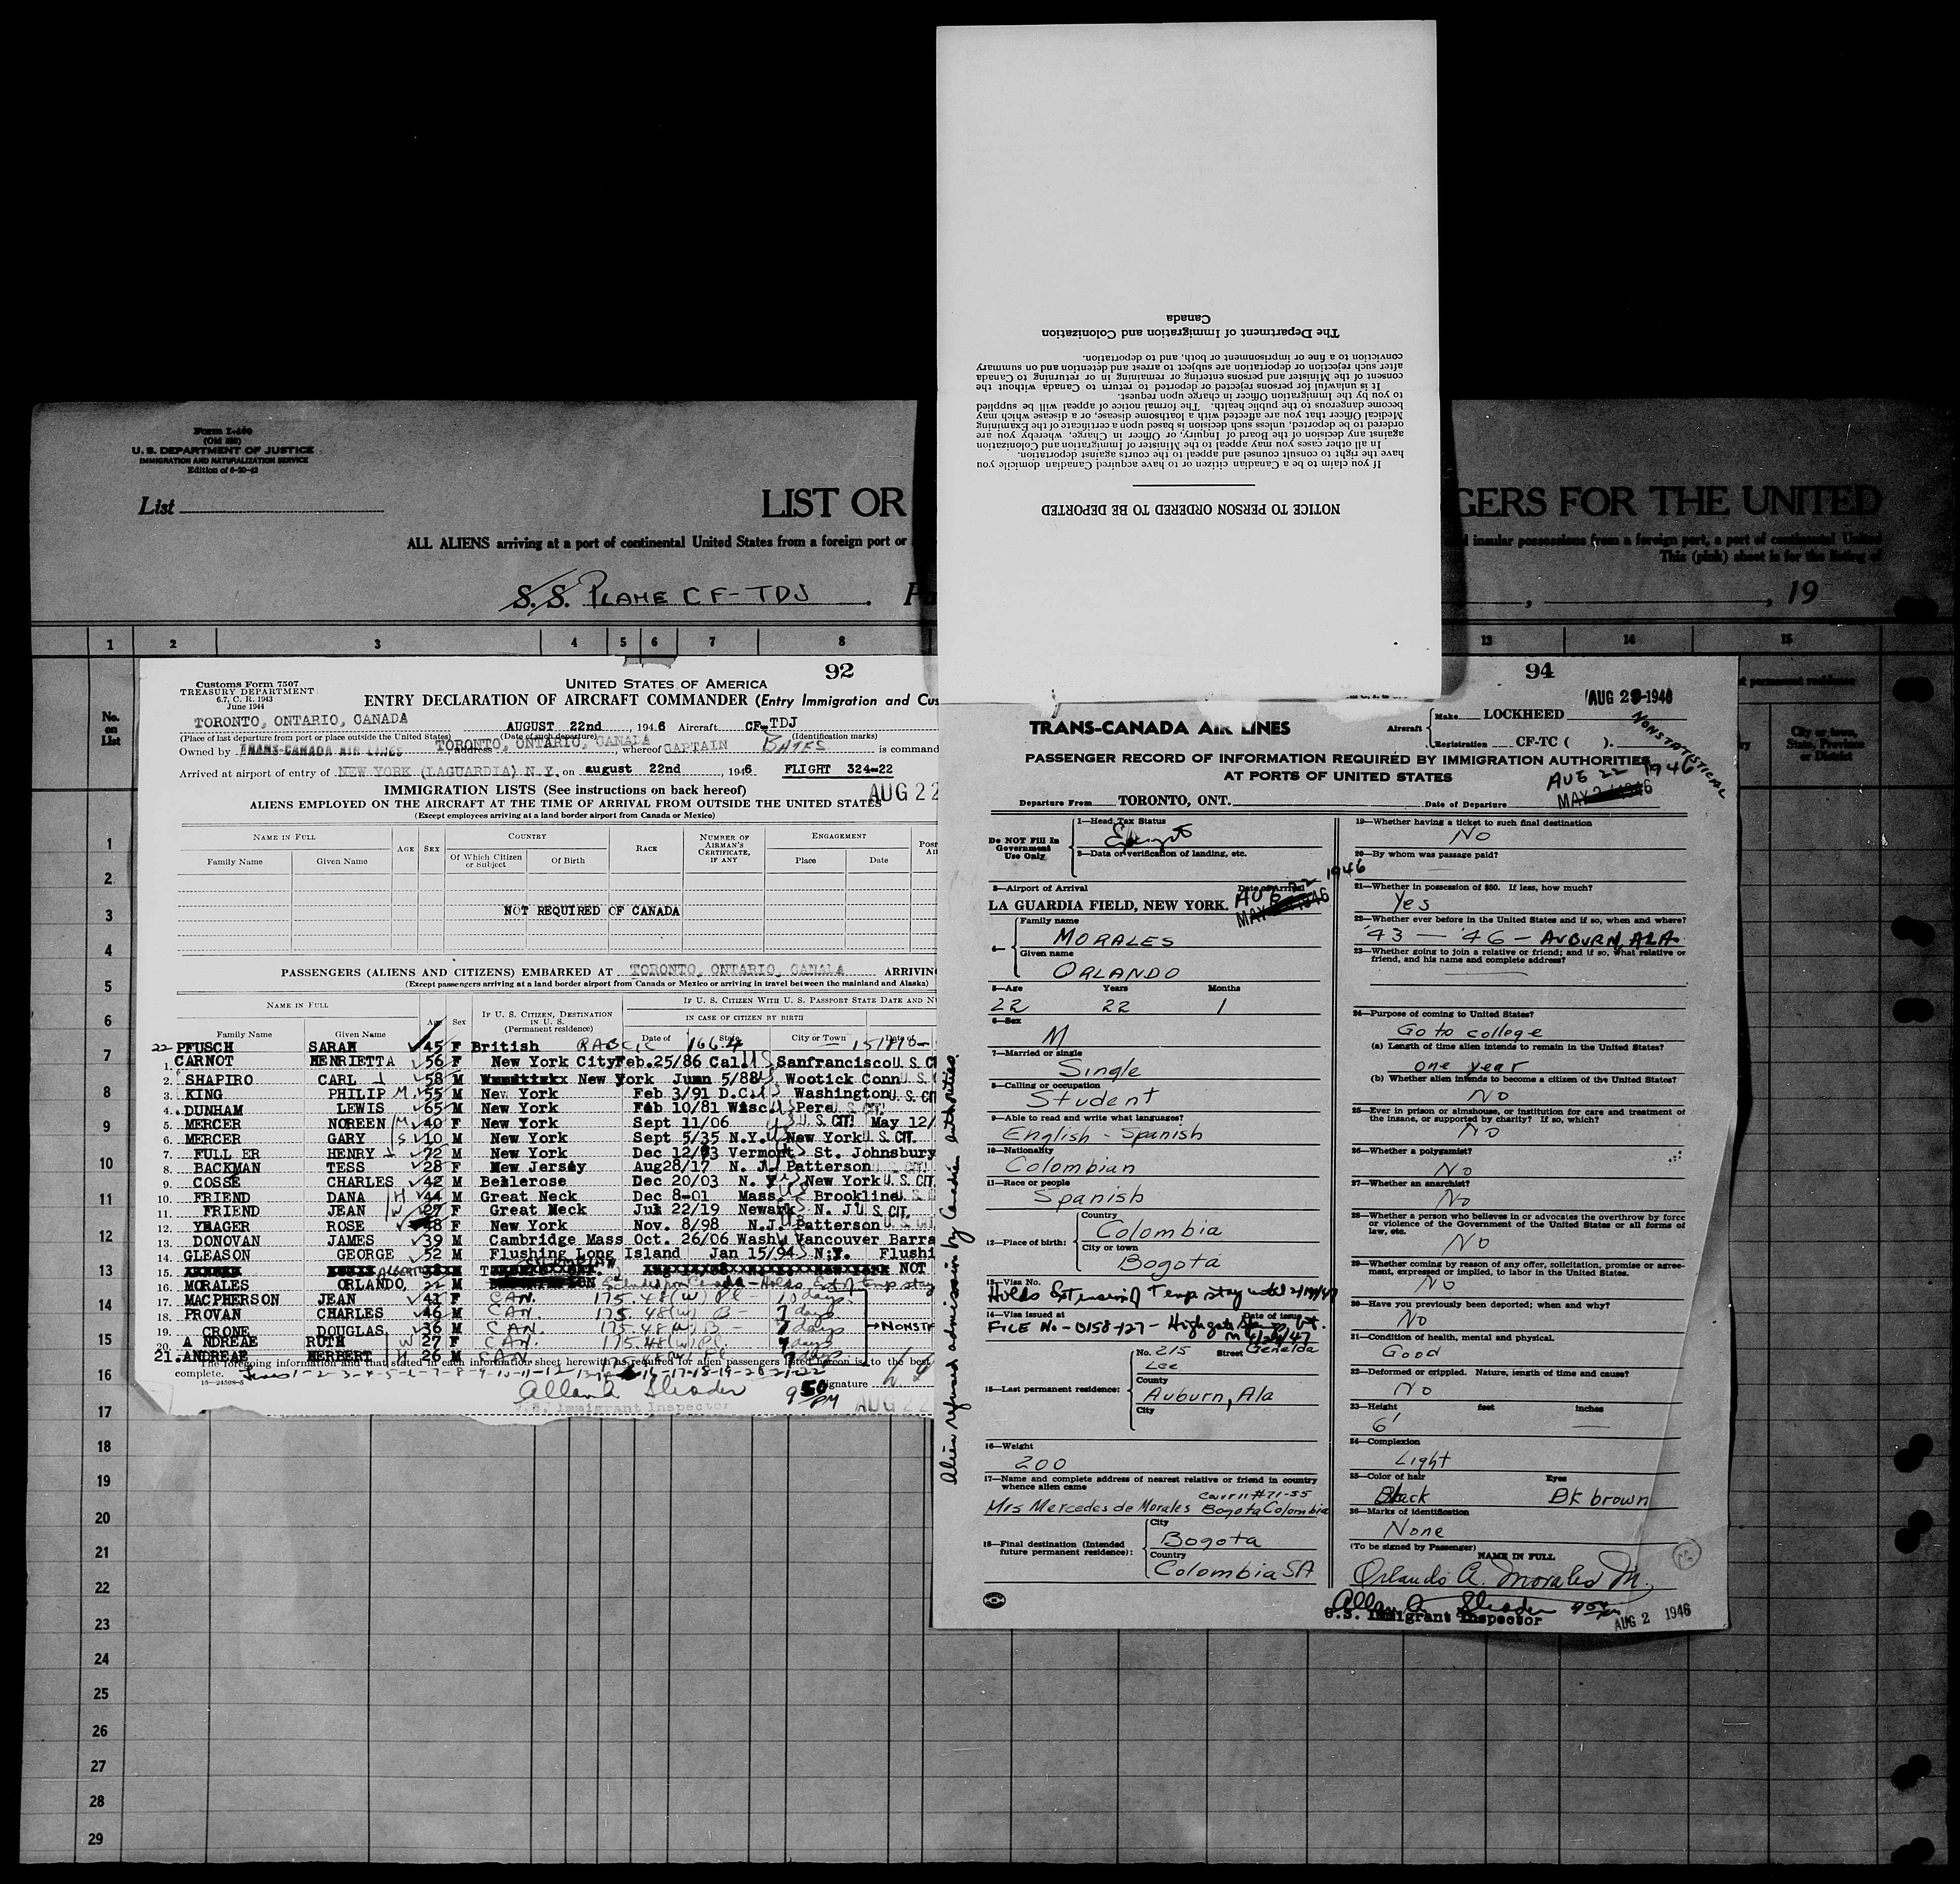 The Department of Immigration and Colonization
Canada
NOTICE TO PERSON ORDERED TO BE DEPORTED
If you claim to be a Canadian citizen or to have acquired Canadian domicile you
have the right to consult counsel and appeal to the courts against deportation.
In all other cases you may appeal to the Minister of Immigration and Colonization
against any decision of the Board of Inquiry, or Officer in Charge, whereby you are
ordered to be deported, unless such decision is based upon a certificate of the Examining
Medical Officer that you are affected with a loathsome disease, or a disease which may
become dangerous to the public health. The formal notice of appeal will be supplied
to you by the Immigration Officer in charge upon request.
It is unlawful for persons rejected or deported to return to Canada without the
consent of the Minister and persons entering or remaining in or returning to Canada
after such rejection or deportation are subject to arrest and detention and on summary
conviction to a fine or imprisonment or both, and to deportation.
U. S. DEPARTMENT OF JUSTICE
IMMIGRATION AND NATURALIZATION SERVICE
Edition of 6-20-42
List
LIST OR
GERS FOR THE UNITED
ALL ALIENS arriving at a port of continental United States from a foreign port or
insular possessions from a foreign port, a port of continental United
This (pink) sheet is for the listing of
S. S. PLANE CF-TDJ
, 19
1 2 3 4 5 6 7 8 13 14 15
No. on List
92
Customs Form 7507
TREASURY DEPARTMENT
6.7, C. R. 1943
June 1944
UNITED STATES OF AMERICA
ENTRY DECLARATION OF AIRCRAFT COMMANDER (Entry Immigration and Cus
TORONTO, ONTARIO, CANADA AUGUST 22nd , 1946 Aircraft CF-TDJ
(Place of last departure from port or place outside the United States) (Date of such departure) (Identification marks)
Owned by TRANS-CANADA AIR LINES address TORONTO, ONTARIO, CANADA , whereof CAPTAIN BATES is command
Arrived at airport of entry of NEW YORK (LAGUARDIA) N.Y. on august 22nd , 1946 FLIGHT 324-22
AUG 22
IMMIGRATION LISTS (See instructions on back hereof)
ALIENS EMPLOYED ON THE AIRCRAFT AT THE TIME OF ARRIVAL FROM OUTSIDE THE UNITED STATES
(Except employees arriving at a land border airport from Canada or Mexico)
NAME IN FULL AGE SEX COUNTRY RACE NUMBER OF AIRMAN'S CERTIFICATE, IF ANY ENGAGEMENT
Family Name Given Name Of Which Citizen or Subject Of Birth Place Date
NOT REQUIRED OF CANADA
PASSENGERS (ALIENS AND CITIZENS) EMBARKED AT TORONTO, ONTARIO, CANADA ARRIVIN
(Except passengers arriving at a land border airport from Canada or Mexico or arriving in travel between the mainland and Alaska)
NAME IN FULL IF U. S. CITIZEN, DESTINATION IN U. S. (Permanent residence) IF U. S. CITIZEN WITH U. S. PASSPORT STATE DATE AND N
IN CASE OF CITIZEN BY BIRTH
Family Name Given Name Age Sex Date of State City or Town Date of
22 PFUSCH SARAH 45 F British 166.4
1. CARNOT HENRIETTA 56 F New York City Feb.25/86 Cal US Sanfrancisco U. S. CI
2. SHAPIRO CARL 58 M New York 5/88 Wootick Conn U. S.
3. KING PHILIP M 55 M New York Feb 3/91 D.C. Washington U. S. CI
4. DUNHAM LEWIS 65 M New York Feb 10/81 Wisc. Pers U. S. CIT.
5. MERCER NOREEN M 40 F New York Sept 11/06 U. S. CIT. May 12/
6. MERCER GARY S 10 M New York Sept 5/35 N.Y. New York U. S. CIT.
7. FULL ER HENRY 72 M New York Dec 12/73 Vermont St. Johnsbury
8. BACKMAN TESS 28 F New Jersey Aug28/17 N. J. Patterson U. S. CIT
9. COSSE CHARLES 42 M Bellerose Dec 20/03 N. Y. New York U. S. CIT.
10. FRIEND DANA H 44 M Great Neck Dec 8-01 Mass. Brookline U. S.
11. FRIEND JEAN W 27 F Great Neck Jul 22/19 Newark N. J. U. S. CIT.
12. YEAGER ROSE 48 F New York Nov. 8/98 N.J. Patterson U. S. CIT
13. DONOVAN JAMES 39 M Cambridge Mass Oct. 26/06 Wash Vancouver Barra
14. GLEASON GEORGE 52 M Flushing Long Island Jan 15/94 N.Y. Flushi
15. NOT
16. MORALES ORLANDO, 22 M COLOMBIAN Excluded from Canada - Holds Ext of temp stay
17. MACPHERSON JEAN 41 F CAN. 175.48(W) Pl - 10 days
18. PROVAN CHARLES 46 M CAN 175.48(W) B - 7 days
19. CRONE DOUGLAS 36 M CAN. 175.48(W) B - 7 days → NONST
20. A NDREAE RUTH W 27 F CAN. 175.48(W) Pl. 7 days
21. ANDREAE HERBERT H 26 M CAN 175.48(W) Pl 7 days
The foregoing information and that stated in each information sheet herewith as required for alien passengers listed hereon is to the best
complete.
16—24598-5
Allan A Sleader 9 50 PM Signature
U.S. Immigrant Inspector AUG 22
1
2
3
4
5
6
7
8
9
10
11
12
13
14
15
16
17
18
19
20
21
22
23
24
25
26
27
28
29
94
AUG 2 1946
TRANS-CANADA AIR LINES
Aircraft Make LOCKHEED
Registration CF-TC ( ).
NONSTATISTICAL
PASSENGER RECORD OF INFORMATION REQUIRED BY IMMIGRATION AUTHORITIES
AT PORTS OF UNITED STATES
AUG 22 1946
Departure From TORONTO, ONT. Date of Departure
Do NOT Fill In Government Use Only
1—Head Tax Status
2—Data or verification of landing, etc.
3—Airport of Arrival Date of Arrival
LA GUARDIA FIELD, NEW YORK. AUG 22 1946
4— Family name
MORALES
Given name
ORLANDO
5—Age Years Months
22 22 1
6—Sex
M
7—Married or single
Single
8—Calling or occupation
Student
9—Able to read and write what languages?
English - Spanish
10—Nationality
Colombian
11—Race or people
Spanish
12—Place of birth: Country
Colombia
City or town
Bogota
13—Visa No.
Holds Extension of Temp stay until
14—Visa issued at Date of issue
FILE No - 0158-127 - Highgate
15—Last permanent residence: No. 215 Street Genelda
Lee
County
Auburn, Ala
City
16—Weight
200
17—Name and complete address of nearest relative or friend in country
whence alien came
Carr 11 #71-55
Mrs Mercedes de Morales Bogota Colombia
18—Final destination (Intended future permanent residence): City
Bogota
Country
Colombia SA
Alien refused admission by Canadian authorities.
19—Whether having a ticket to such final destination
No
20—By whom was passage paid?
21—Whether in possession of $50. If less, how much?
Yes
22—Whether ever before in the United States and if so, when and where?
'43 — '46 - AUBURN, ALA.
23—Whether going to join a relative or friend; and if so, what relative or
friend, and his name and complete address?
24—Purpose of coming to United States?
Go to college
(a) Length of time alien intends to remain in the United States?
one year
(b) Whether alien intends to become a citizen of the United States?
No
25—Ever in prison or almshouse, or institution for care and treatment of
the insane, or supported by charity? If so, which?
No
26—Whether a polygamist?
No
27—Whether an anarchist?
No
28—Whether a person who believes in or advocates the overthrow by force
or violence of the Government of the United States or all forms of
law, etc.
No
29—Whether coming by reason of any offer, solicitation, promise or agree-
ment, expressed or implied, to labor in the United States.
No
30—Have you previously been deported; when and why?
No
31—Condition of health, mental and physical.
Good
32—Deformed or crippled. Nature, length of time and cause?
No
33—Height feet inches
6'
34—Complexion
Light
35—Color of hair Eyes
Black DK brown
36—Marks of identification
None
(To be signed by Passenger)
NAME IN FULL
Orlando A. Morales M.
Allan A Sleader
U.S. Immigrant Inspector
AUG 2 1946
City or town, State, Province or District